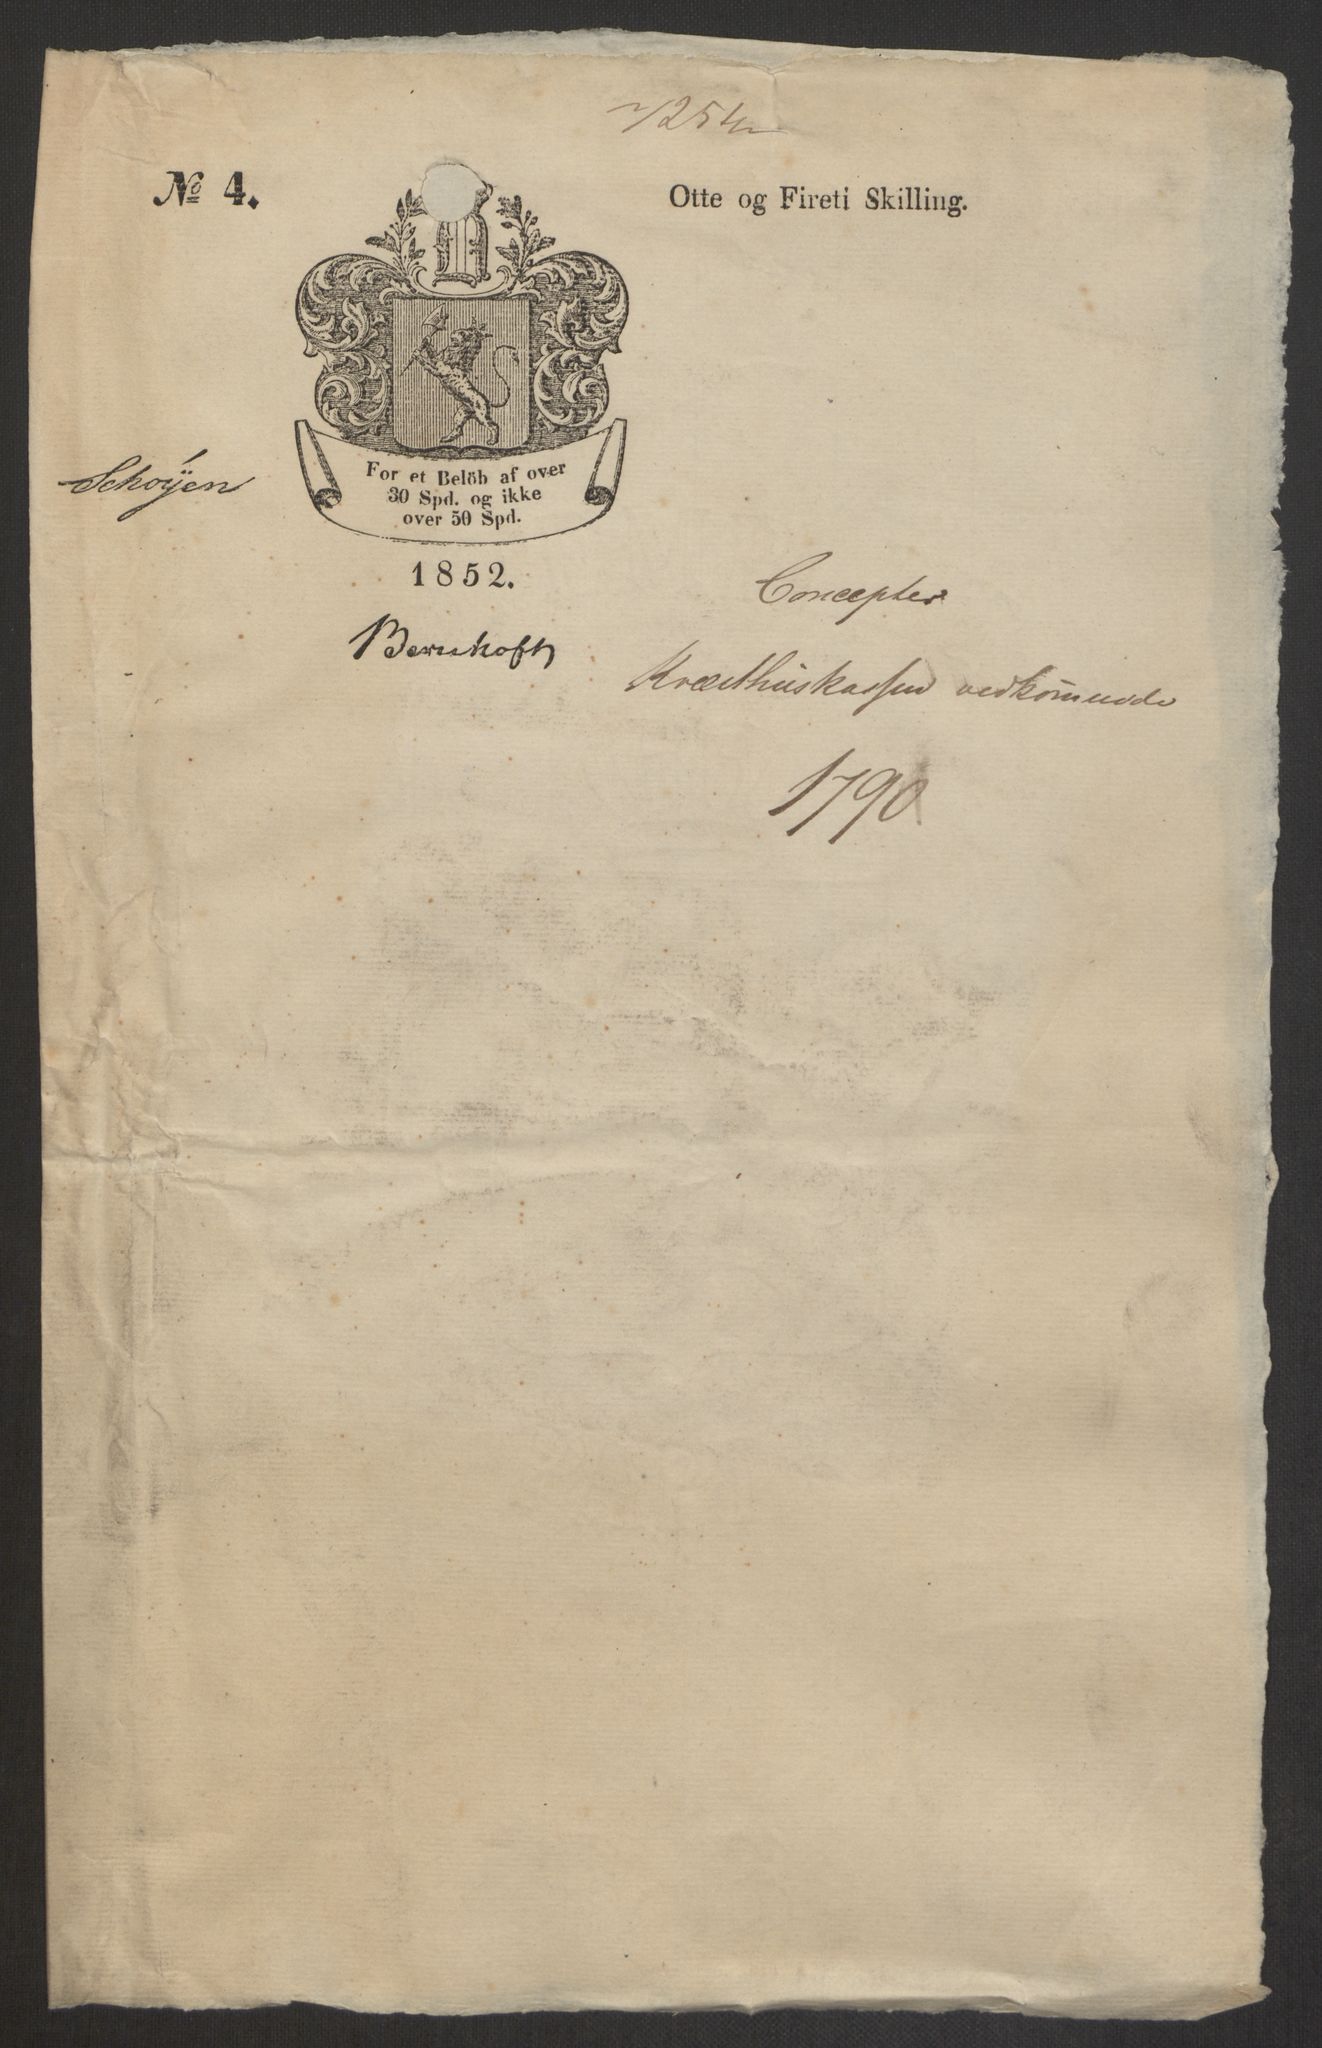 № 4.
Otte og Fireti Skilling.
Schøyen
For et Belöb af over
30 Spd. og ikke
over 50 Spd.
1852.
Bernhoft
Concepter
vedkommende
1790